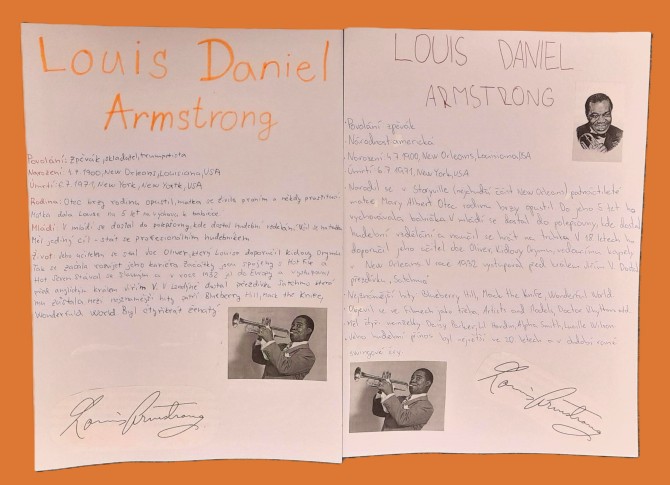 Louis Daniel
Armstrong
Povolání: Zpěvák, skladatel, trumpetista
Narození 4.7.1900, New Orleans, Louisiana, USA
Úmrtí 6.7.1971, New York, New York, USA
Rodina: Otec brzy rodinu opustil, matka se živila praním a někdy prostitucí.
Matka dala Louise na 5 let na výchovu k babičce.
Mládí: V mládí se dostal do polepšovny, kde dostal hudební vzdělání.
Měl jediný cíl - stát se profesionálním hudebníkem
Život: Jeho učitelem se stal Joe Oliver, který Louise doporučil Kidovy Orymu
Tak se začala rozvíjet jeho kariéra. Začátky jsou spojeny s Hot Five a
Hot Seven. V roce 1932 jel do Evropy a vystupoval
před anglickým králem Jiřím V. V Londýně dostal přezdívku Satchmo, která
mu zůstala. Mezi nejznámější hity patří Blueberry Hill, Mack the Knife,
Wonderful World. Byl čtyřikrát ženatý
Louis Armstrong
LOUIS DANIEL
ARMSTRONG
Povolání zpěvák
Národnost americká
Narození 4.7.1900, New Orleans, Louisiana, USA
Úmrtí 6.7.1971, New York, USA
Narodil se v Storyville (nejchudší část New Orleans) patnáctileté
matce Mary Albert. Otec rodinu brzy opustil. Do jeho 5 let ho
vychovávala babička. V mládí se dostal do polepšovny, kde dostal
hudební vzdělání a naučil se hrát na trubku. V 18 letech ho
doporučil jeho učitel Joe Oliver Kidovy Orymu, vedoucímu kapely
v New Orleans. V roce 1932 vystupoval před králem Jiřím V. Dostal
přezdívku "Satchmo"
Nejznámější hity: Blueberry Hill, Mack the Knife, Wonderful World
Objevil se ve filmech jako třeba, Artists and Models, Doctor Rhythm atd.
Měl čtyři manželky Daisy Parker, Lil Hardin, Alpha Smith, Lucille Wilson
Jeho hudební přínos byl největší ve 20 letech a v období rané
swingové éry.
Louis Armstrong